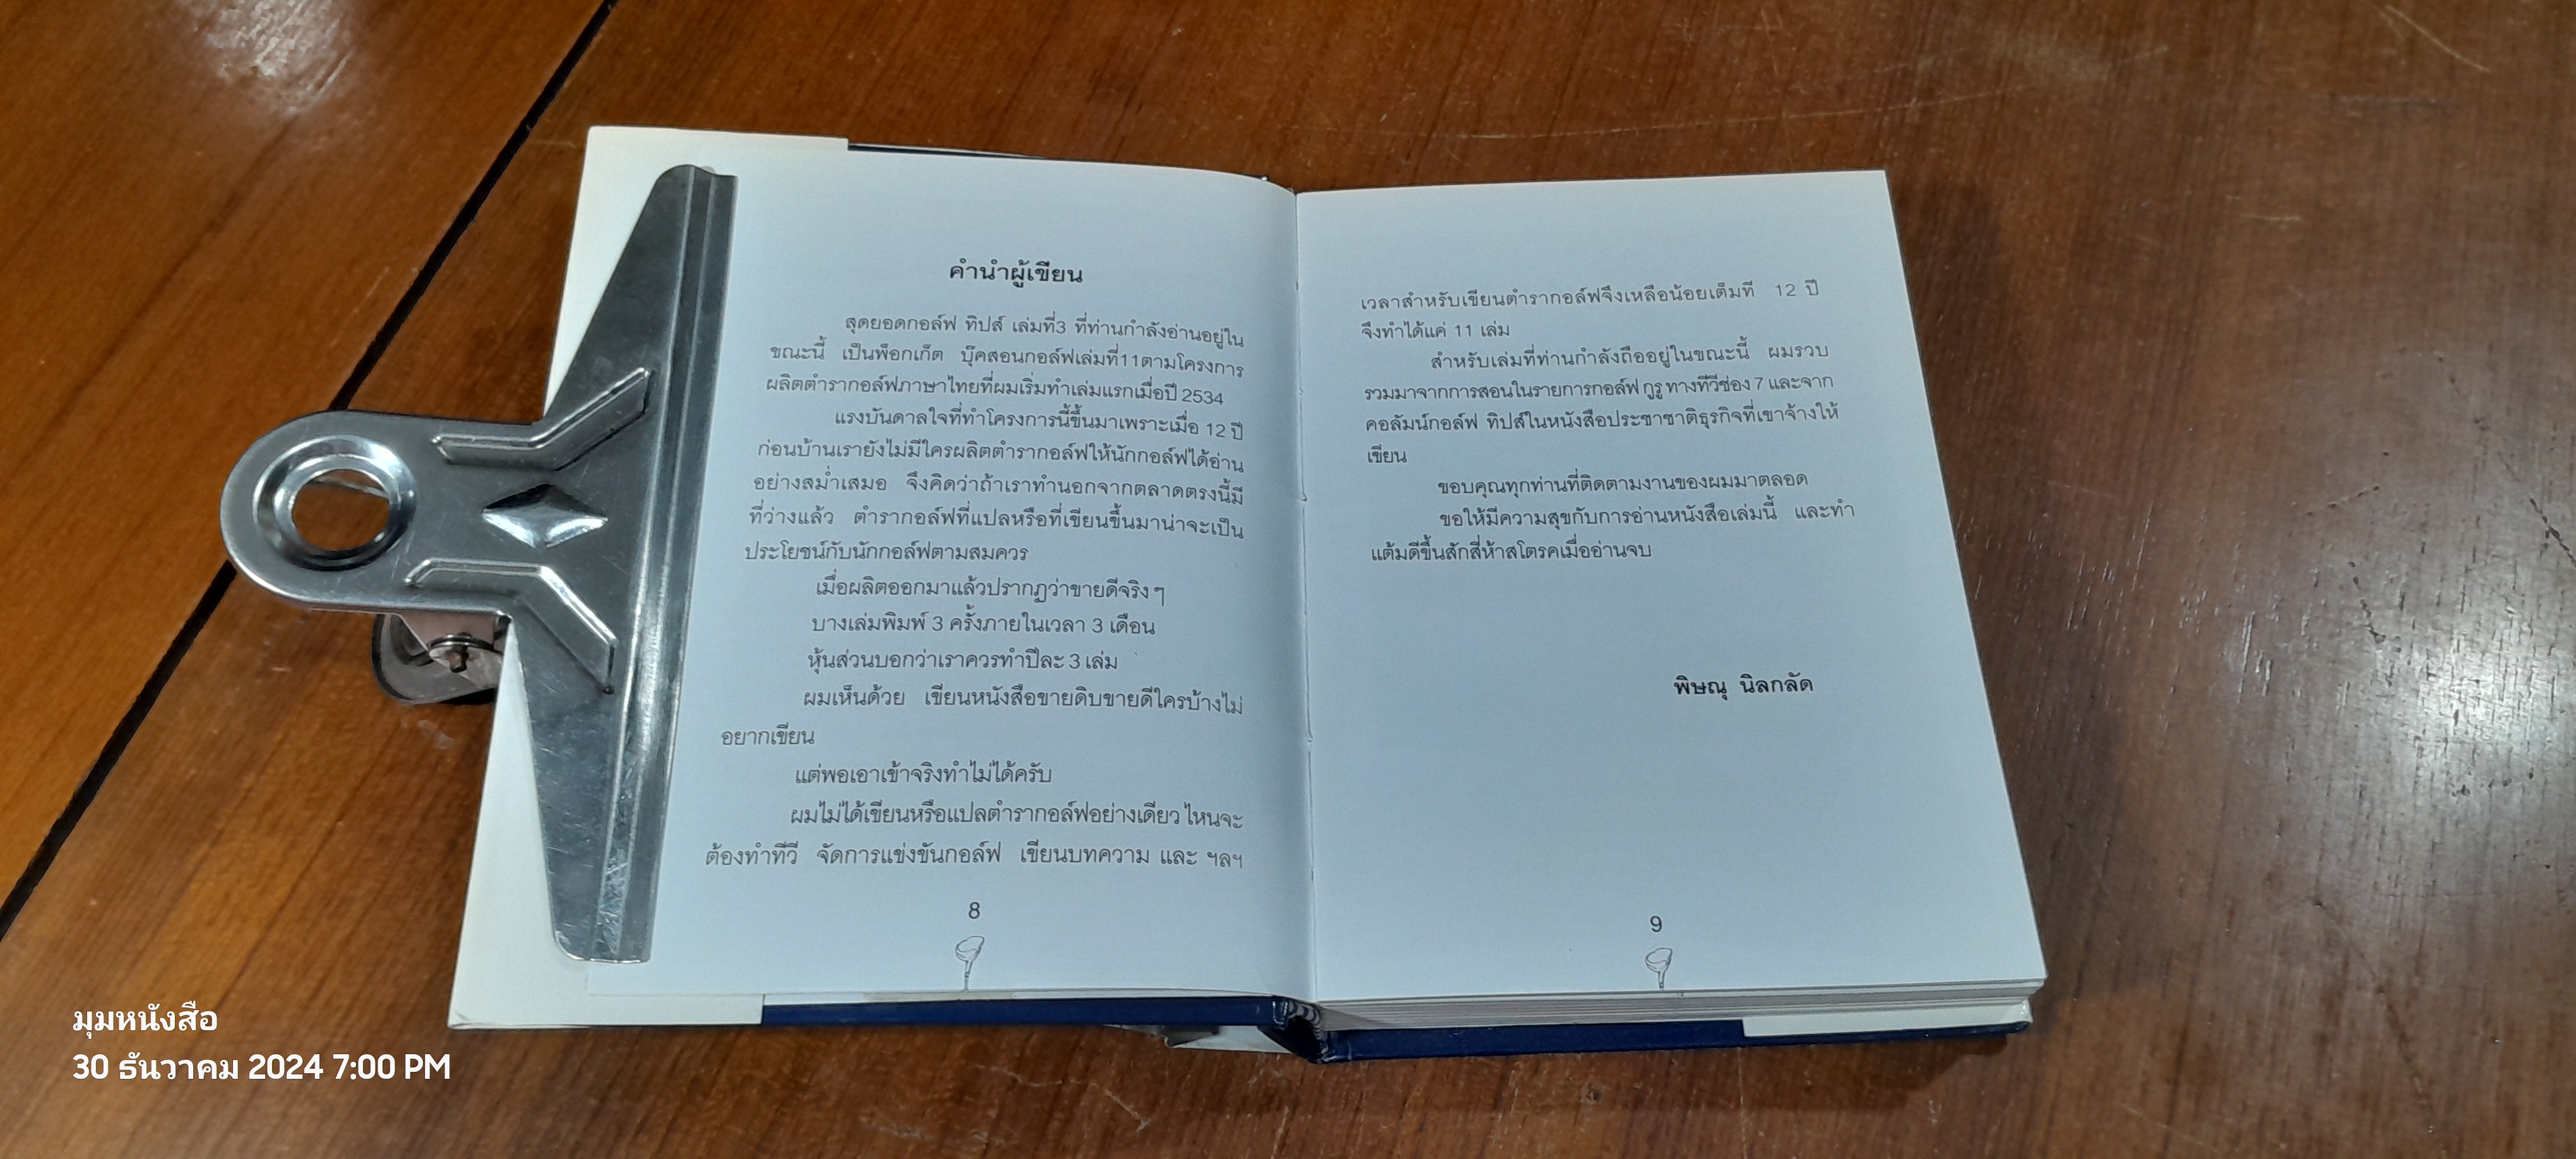 คำนำผู้เขียน
สุดยอดกอล์ฟ ทิปส์ เล่มที่3 ที่ท่านกำลังอ่านอยู่ใน
ขณะนี้ เป็นพ็อกเก็ต บุ๊คสอนกอล์ฟเล่มที่11ตามโครงการ
ผลิตตำรากอล์ฟภาษาไทยที่ผมเริ่มทำเล่มแรกเมื่อปี 2534
แรงบันดาลใจที่ทำโครงการนี้ขึ้นมาเพราะเมื่อ 12 ปี
ก่อนบ้านเรายังไม่มีใครผลิตตำรากอล์ฟให้นักกอล์ฟได้อ่าน
อย่างสม่ำเสมอ จึงคิดว่าถ้าเราทำนอกจากตลาดตรงนี้มี
ที่ว่างแล้ว ตำรากอล์ฟที่แปลหรือที่เขียนขึ้นมาน่าจะเป็น
ประโยชน์กับนักกอล์ฟตามสมควร
เมื่อผลิตออกมาแล้วปรากฏว่าขายดีจริงๆ
บางเล่มพิมพ์ 3 ครั้งภายในเวลา 3 เดือน
หุ้นส่วนบอกว่าเราควรทำปีละ 3 เล่ม
ผมเห็นด้วย เขียนหนังสือขายดิบขายดีใครบ้างไม่
อยากเขียน
แต่พอเอาเข้าจริงทำไม่ได้ครับ
ผมไม่ได้เขียนหรือแปลตำรากอล์ฟอย่างเดียว ไหนจะ
ต้องทำทีวี จัดการแข่งขันกอล์ฟ เขียนบทความ และ ฯลฯ
8
เวลาสำหรับเขียนตำรากอล์ฟจึงเหลือน้อยเต็มที 12 ปี
จึงทำได้แค่ 11 เล่ม
สำหรับเล่มที่ท่านกำลังถืออยู่ในขณะนี้ ผมรวบ
รวมมาจากการสอนในรายการกอล์ฟ กูรู ทางทีวีช่อง 7 และจาก
คอลัมน์กอล์ฟ ทิปส์ในหนังสือประชาชาติธุรกิจที่เขาจ้างให้
เขียน
ขอบคุณทุกท่านที่ติดตามงานของผมมาตลอด
ขอให้มีความสุขกับการอ่านหนังสือเล่มนี้ และทำ
แต้มดีขึ้นสักสี่ห้าสโตรคเมื่ออ่านจบ
พิษณุ นิลกลัด
9
มุมหนังสือ
30 ธันวาคม 2024 7:00 PM